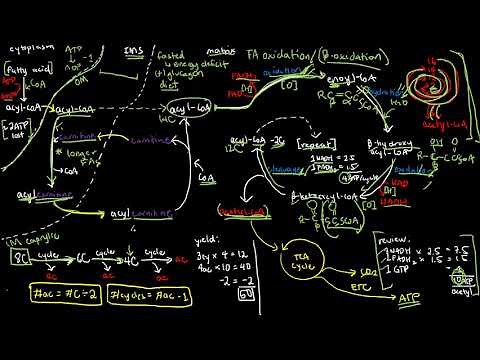 cytoplasm
IMS
matrix
FA oxidation/(β-oxidation)
fasted
↓ energy deficit
(+) glucagon
diet
[fatty acid]
ATP
CoA
OM
acyl-CoA
acyl-CoA
acyl-CoA
14C
oxidation
[O]
enoyl-CoA
hydration
H2O
acetyl-CoA
carnitine
carnitine
* longer FAs
CoA
CoA
acyl carnitine
acyl carnitine
acyl-CoA -2C
12C
[repeat]
1 NADH = 2.5
1 FADH2 = 1.5
④ ATP/cycle
β-hydroxy
acyl-CoA
NAD
NADH
[O]
β-ketoacyl-CoA
acetyl-CoA
M caprylic
8C
cycle
6C
cycle
4C
cycle
ac
ac
ac
ac
#ac = #C ÷ 2
#cycles = #ac - 1
yield:
3cy × 4 = 12
4ac × 10 = 40
-2 = -2
50
TCA
cycle
CO2
ETC
ATP
review:
1 NADH × 2.5 = 7.5
1 FADH2 × 1.5 = 1.5
1 GTP
10 ATP
acetyl